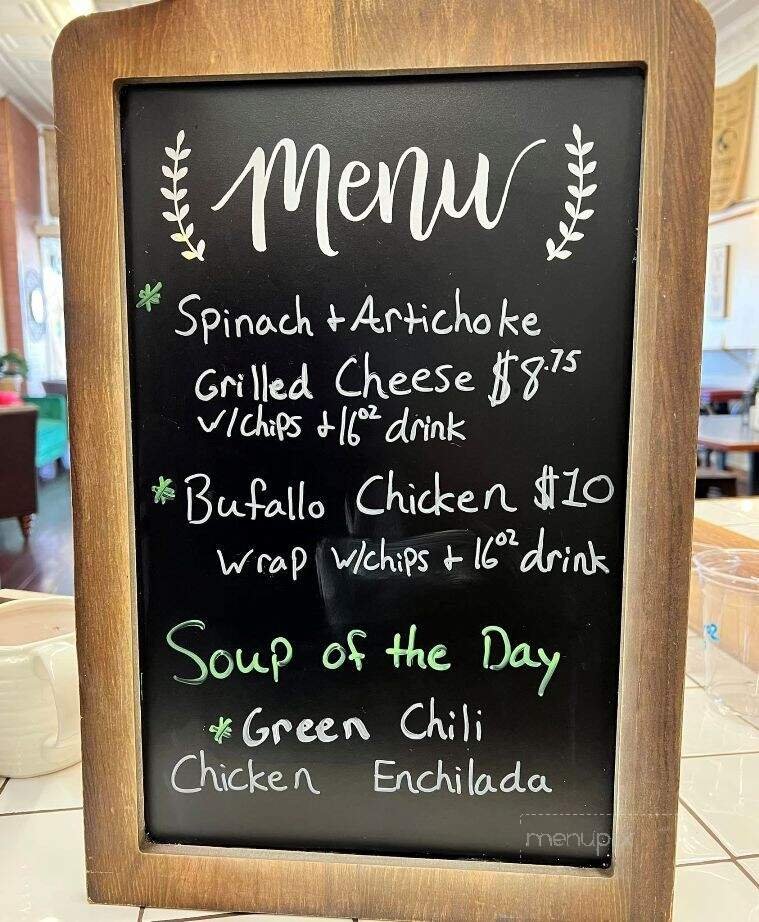 Menu
* Spinach + Artichoke
Grilled Cheese $8.75
w/chips + 16oz drink
* Bufallo Chicken $10
Wrap w/chips + 16oz drink
Soup of the Day
* Green Chili
Chicken Enchilada